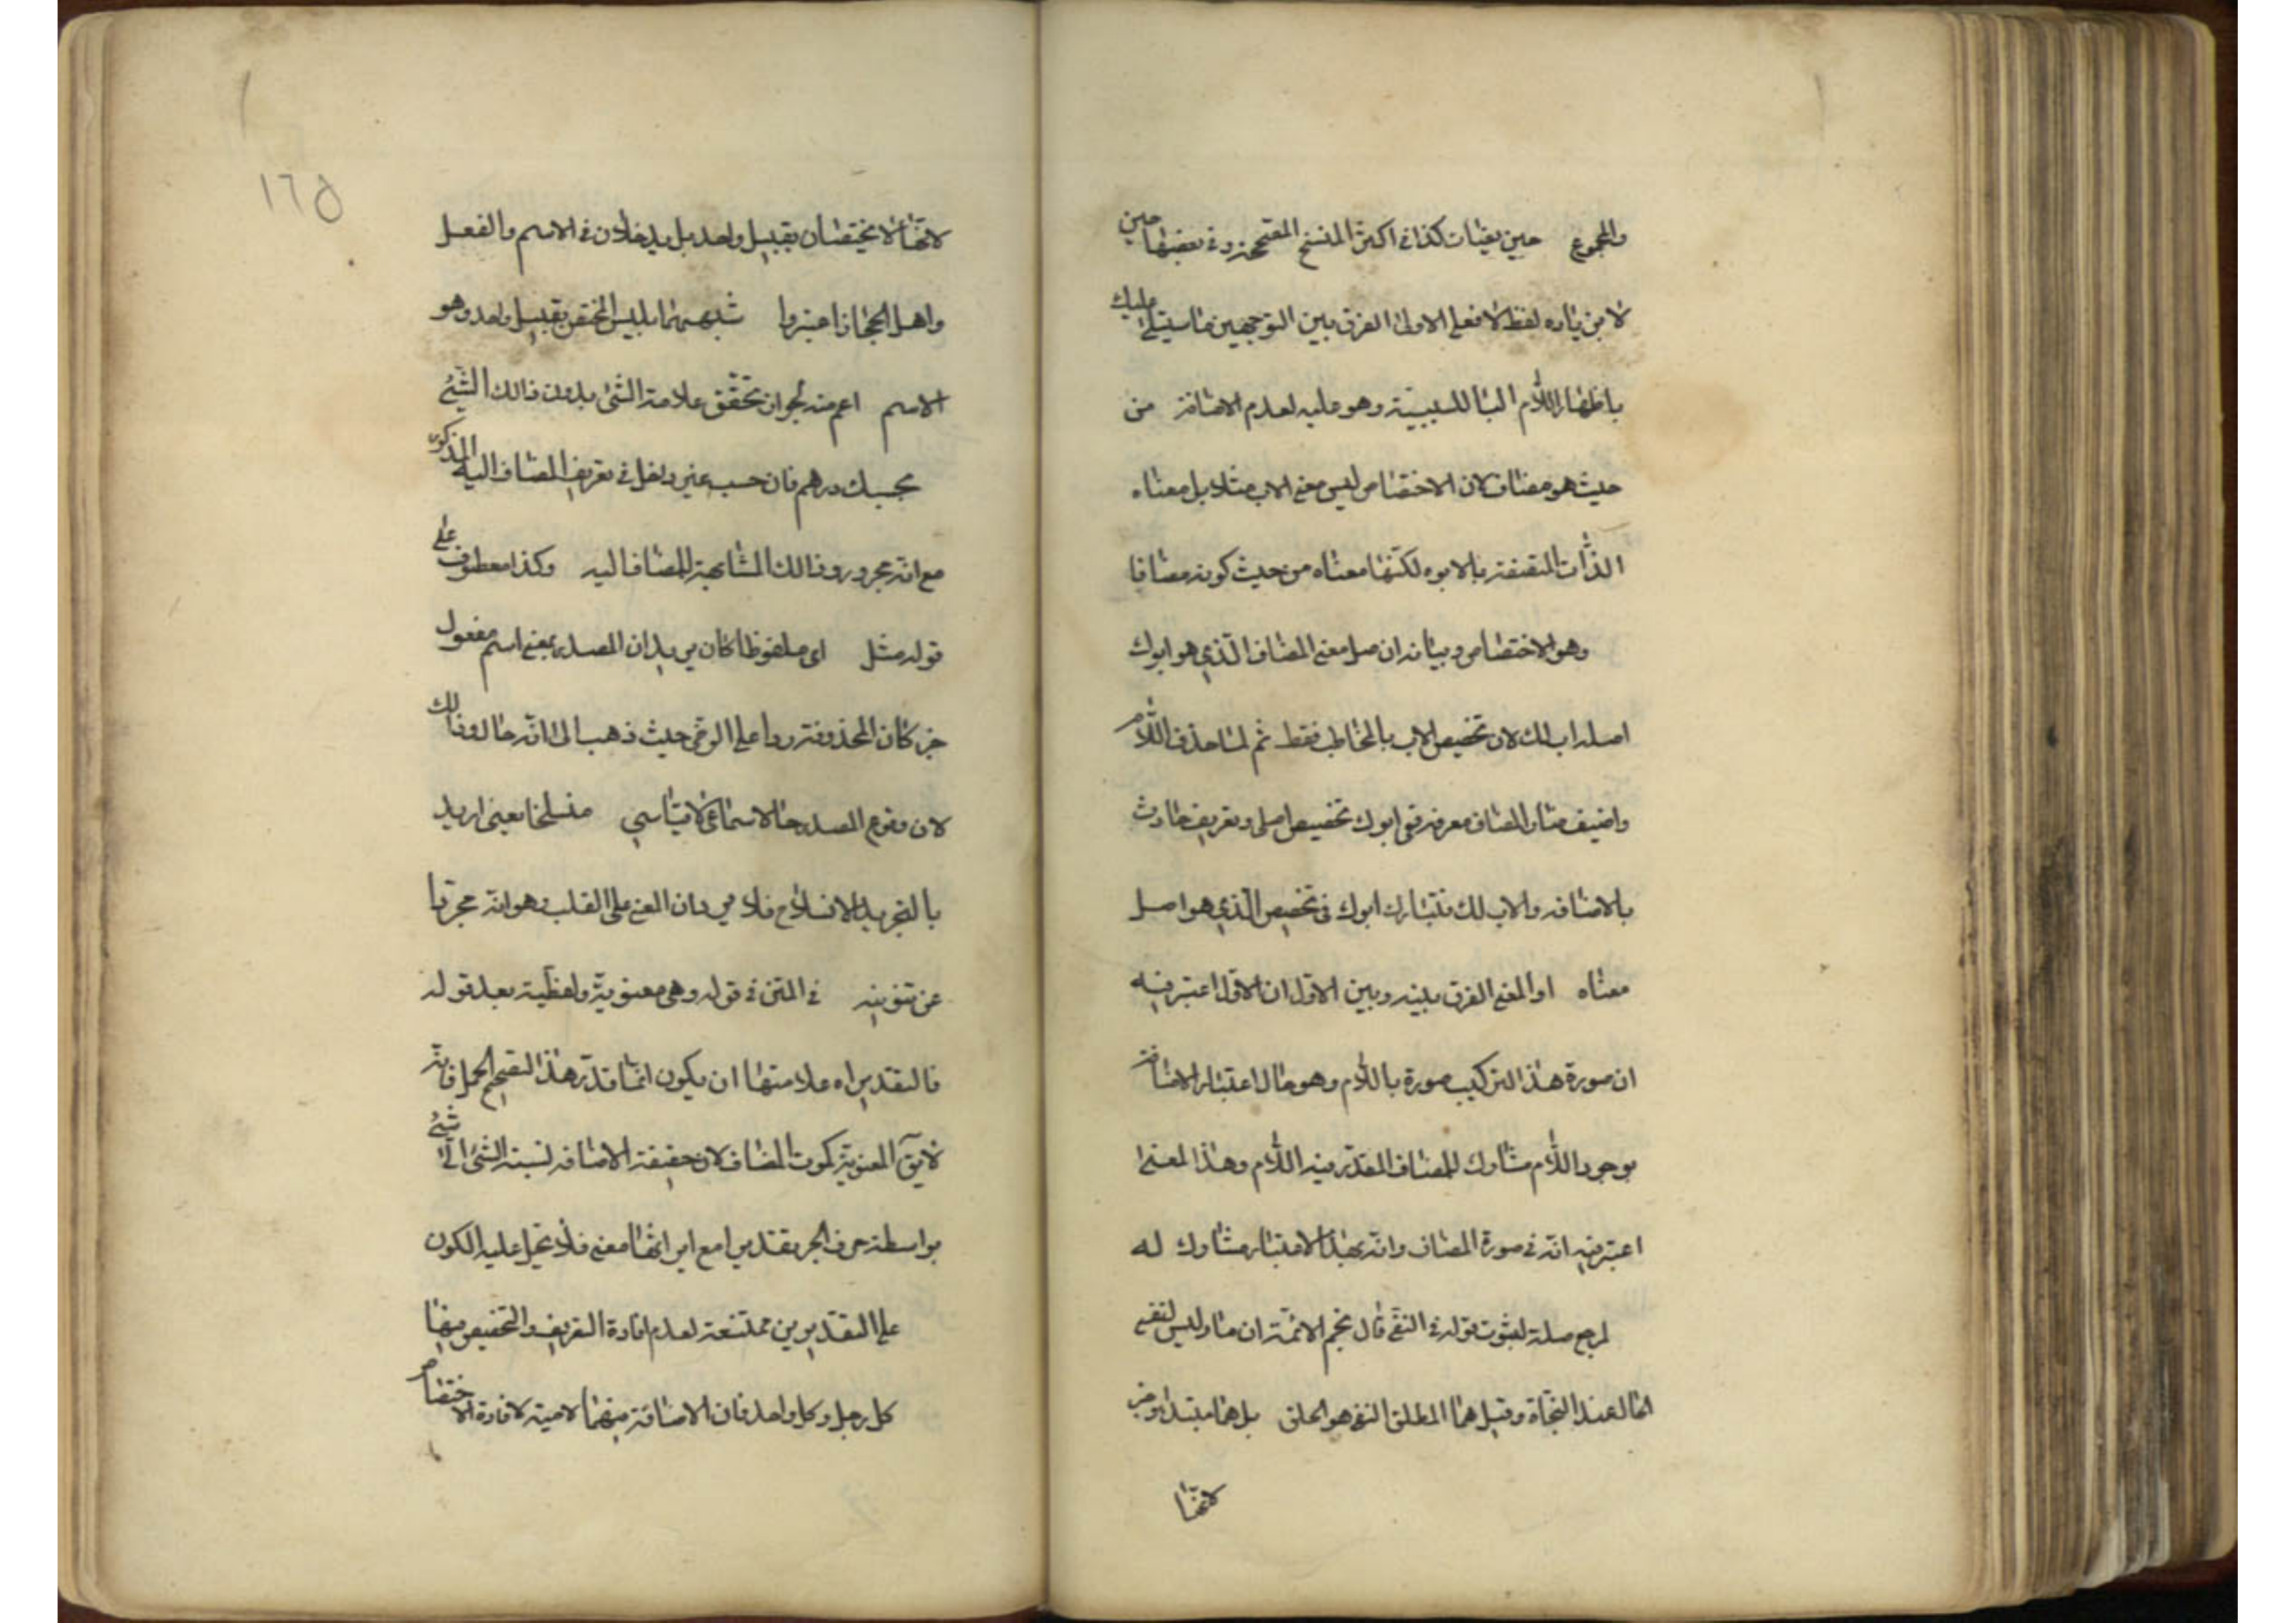 والمجموع حين يقينات كذا في اكثر النسخ المصححة وفي بعضها حين
لا من زيادة لفظ لا فعلى الاول الفرق بين التوجيهين ما سيتلى عليك
باظهار اللام البا للسببية وهو عليه لعدم الاضافة من
حيث هو مضاف لان الاختصاص ليس معنى الاب مثلا بل معناه
الذات المتصفة بالابوه لكنها معناه من حيث كونه مضافا
وهو الاختصاص وبيانه ان اصل معنى المضاف الذي هو ابوك
اصله اب لك لان تخصيص الاب بالمخاطب فقط ثم لما حذف اللام
واضيف صار المضاف معرفة ففي ابوك تخصيص اصلي وتعريف حادث
بالاضافه والاب لك تشارك ابوك في تخصيص الذي هو اصل
معناه او المعنى الفرق بينه وبين الاول ان الاول اعتبر فيه
ان صورة هذا التركيب صورة باللام وهو حال اعتبار الاضافة
بوجود اللام مشارك للمضاف المقدر فيه اللام وهذا المعنى
اعتبر فيه انه في صورة المضاف وانه بهذا الاعتبار مشارك له
لمرجع صلة لثبوت قوله في النفي قال نجم الائمة ان ما وليس لنفي
الحال عند النحاة وقيل هما لمطلق النفي هو الحق بل هما مبتدا وخبر
لانهما
١٦٥
لانهما لا يختصان بقبيل واحد بل يدخلان في الاسم والفعل
واهل الحجاز اعتبروا شبههما بليس المختص بقبيل واحد وهو
الاسم اعم منه لجواز تحقق علامة الشئ بدون ذالك الشئ
بحسبك درهم فان حسب غير داخل في تعريف المضاف اليه المذكور
مع انه مجرور وذالك لمشابهة للمضاف اليه وكذا معطوف على
قوله مثل اي ملفوظا كان يريد ان المصدر بمعنى اسم مفعول
خبر كان المحذوفة ردا على الرضي حيث ذهب الى انه حال وذالك
لان وقوع المصدر حالا سماعي لا قياسي منسلخا يعني اريد
بالتجريد الانسلاخ فلا يرد ان المعنى على القلب وهو انه مجردا
عن تنوينه في المتن في قوله وهي معنوية ولفظية بعد قوله
فالتقدير اه علامتها ان يكون انما قدر هذا لتصحيح الحمل فانه
لايق المعنوية كون المضاف لان حقيقة الاضافه نسبة الشئ الى شئ
بواسطة حرف الجر تقديرا مع اير انها معنى فلا يحمل عليه الكون
على التقديرين ممتنعة لعدم افادة التعريف والتخصيص فيها
كل رجل وكل واحد فان الاضافة فيهما لامية لافادة الاختصاص